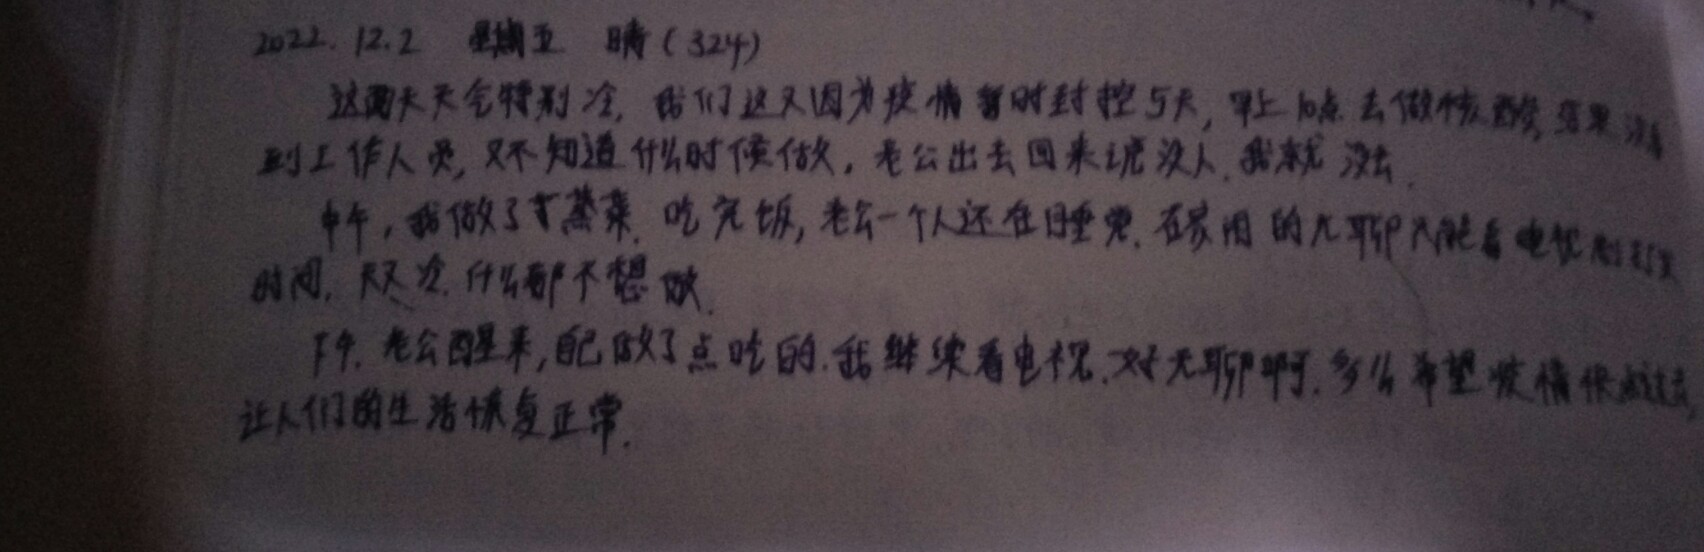 2022.12.2 星期五 晴(324)
这两天天气特别冷,我们这又因为疫情暂时封控5天,早上10点去做核酸,结果没看
到工作人员,又不知道什么时候做,老公出去回来说没人,我就没去.
中午,我做了个蒸菜.吃完饭,老公一个人还在睡觉.在家闲的无聊只能看电视
时间.天又冷.什么都不想做.
下午.老公醒来,自己做了点吃的.我继续看电视.好无聊啊.多么希望疫情快点过去,
让人们的生活恢复正常.